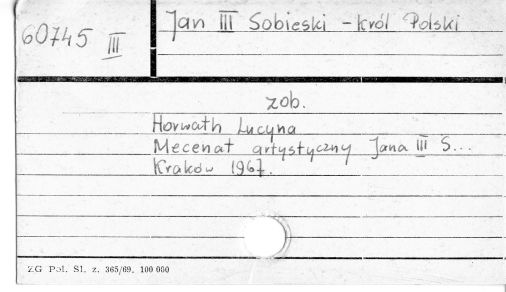 60745 III
Jan III Sobieski - Król Polski
zob.
Horwath Lucyna
Mecenat artystyczny Jana III S...
Kraków 1967.
ZG Pol. Sl. z. 365/69. 100 000